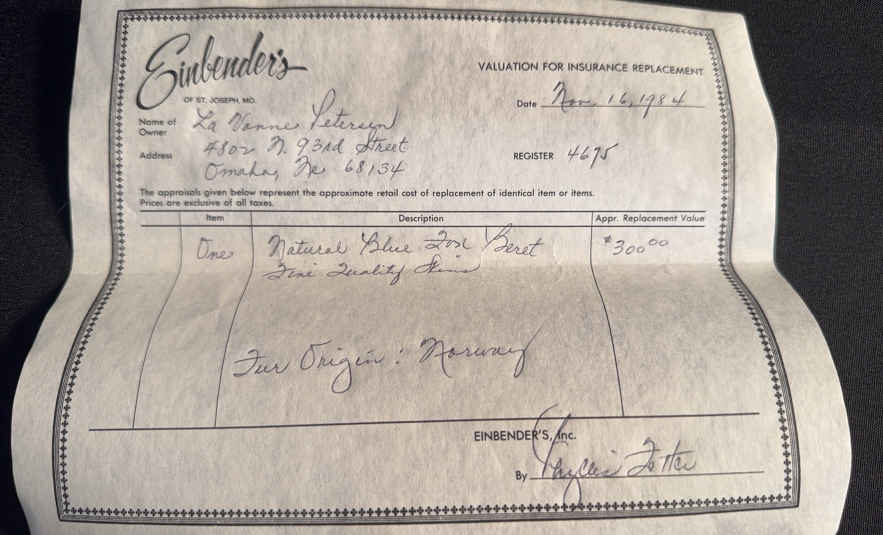 Einbender's
OF ST. JOSEPH, MO.
VALUATION FOR INSURANCE REPLACEMENT
Date Nov. 16, 1984
Name of Owner La Vonne Petersen
Address 4802 N. 93rd Street
Omaha, Ne 68134
REGISTER 4675
The appraisals given below represent the approximate retail cost of replacement of identical item or items.
Prices are exclusive of all taxes.
Item Description Appr. Replacement Value
One Natural Blue Fox Beret $300.00
Fine Quality Skins
Fur Origin: Norway
EINBENDER'S, Inc.
By Phyllis